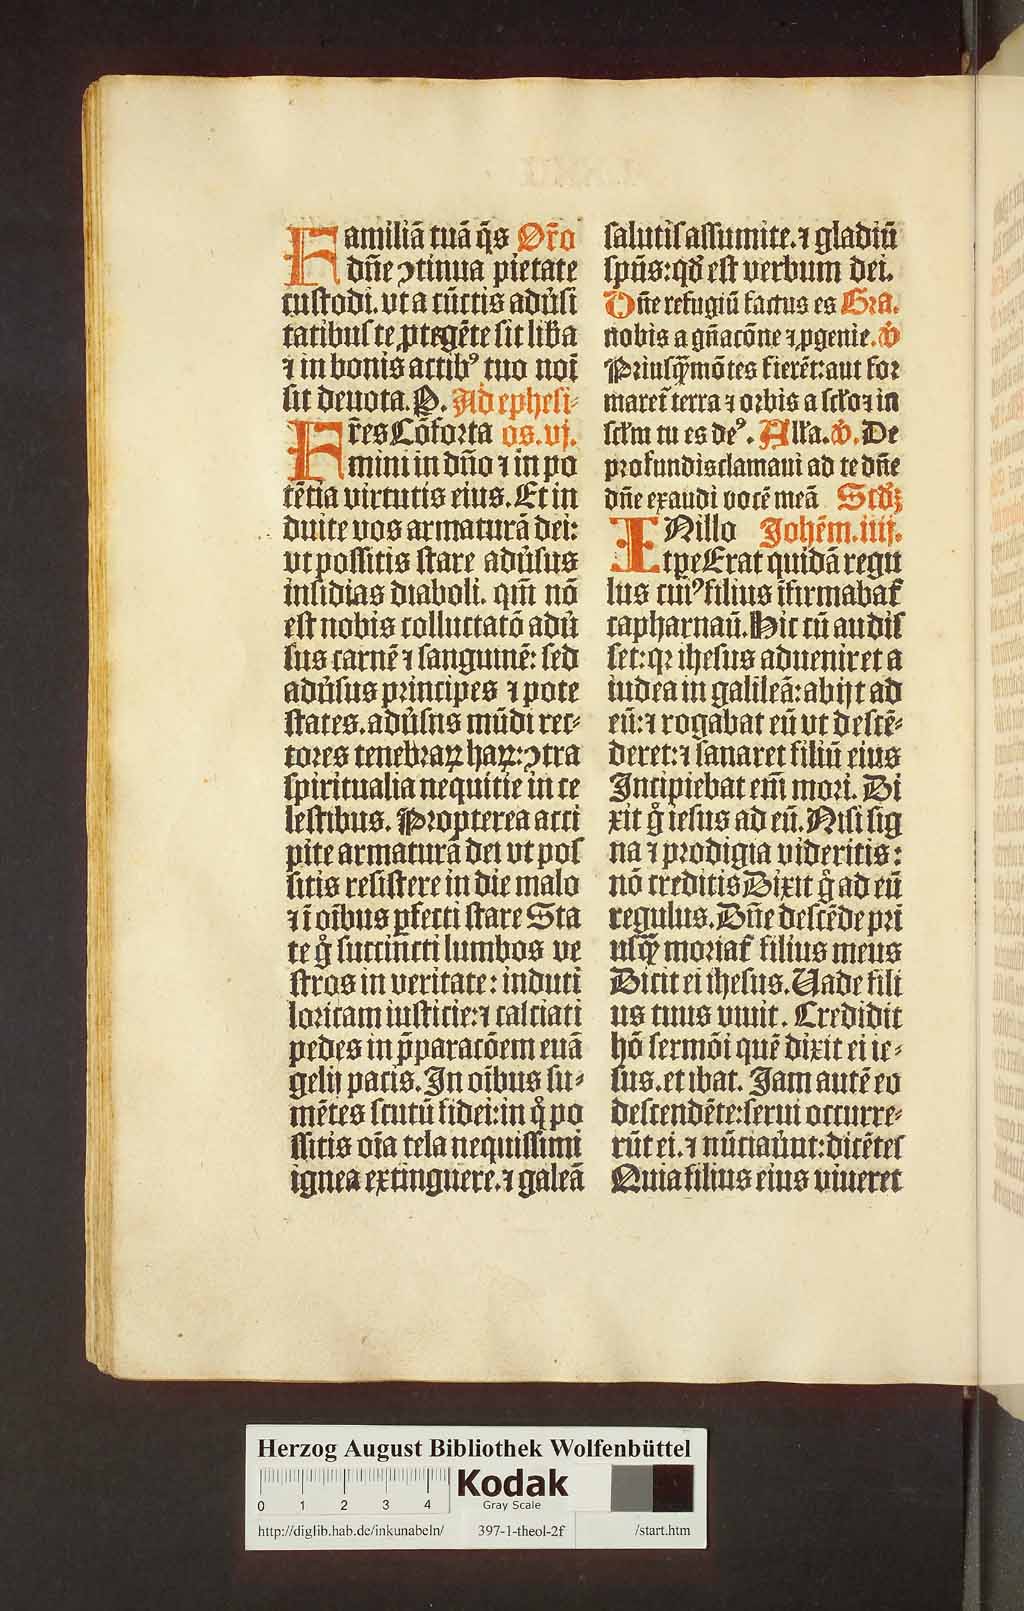 Familiã tuã q̃s Or̃o
dñe ꝯtinua pietate
custodi. vt a cũctis aduersi
tatibus te ꝓtegẽte sit liƀa
⁊ in bonis actibꝰ tuo noĩ
sit deuota. P. Ad ephesi-
Fr̃es Cõforta os. vj.
mini in dño ⁊ in po
tẽtia virtutis eius. Et in
duite vos armaturã dei:
vt possitis stare adu̾sus
insidias diaboli. qm̃ nõ
est nobis colluctatõ adu̾
sus carnẽ ⁊ sanguinẽ: sed
adu̾sus principes ⁊ pote
states. adu̾sus mũdi rec-
tores tenebraꝝ haꝝ: ꝯtra
spiritualia nequitie in ce
lestibus. Propterea acci
pite armaturã dei vt pos
sitis resistere in die malo
⁊ ĩ oĩbus ꝑfecti stare Sta
te gͦ succincti lumbos ve
stros in veritate: induti
loricam iusticie: ⁊ calciati
pedes in p̃paracõem euã
gelij pacis. In oĩbus su-
mẽtes scutũ fidei: in qͦ po
ssitis oĩa tela nequissimi
ignea extinguere. ⁊ galeã
salutis assumite. ⁊ gladiũ
spũs: qđ est verbum dei.
Dñe refugiũ factus es Gra.
nobis a gñacõne ⁊ ꝓgenie. v̾
Priusꝙ̃ mõtes fierẽt: aut for
maret̃ terra ⁊ orbis a sclõ ⁊ in
sclm̃ tu es deꝰ. All'a. v̾. De
profundis clamaui ad te dñe
dñe exaudi vocẽ meã Scđꝫ
INillo Johẽm. iiij.
tꝑe Erat quidã regu
lus cuiꝰ filius ĩfirmabat̃
capharnaũ. Hic cũ audis
set: qꝛ ihesus adueniret a
iudea in galileã: abijt ad
eũ: ⁊ rogabat eũ vt descẽ-
deret: ⁊ sanaret filiũ eius
Incipiebat em̃ mori. Di
xit gͦ iesus ad eũ. Nisi sig
na ⁊ prodigia videritis:
nõ creditis Dixit gͦ ad eũ
regulus. Dñe descẽde pri
usꝙ̃ moriat̃ filius meus
Dicit ei ihesus. Uade fili
us tuus viuit. Credidit
hõ sermõi quẽ dixit ei ie-
sus. et ibat. Jam autẽ eo
descendẽte: serui occurre-
rũt ei. ⁊ nũciau̾unt: dicẽtes
Quia filius eius viueret
Herzog August Bibliothek Wolfenbüttel
Kodak
Gray Scale
0 1 2 3 4
http://diglib.hab.de/inkunabeln/ 397-1-theol-2f /start.htm